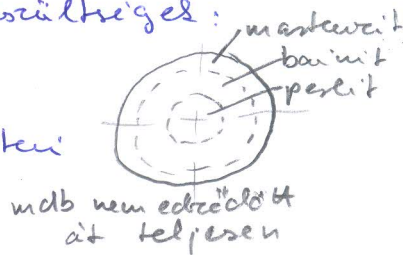 szültséges:
martenzit
bainit
perlit
mdb nem edződött
át teljesen